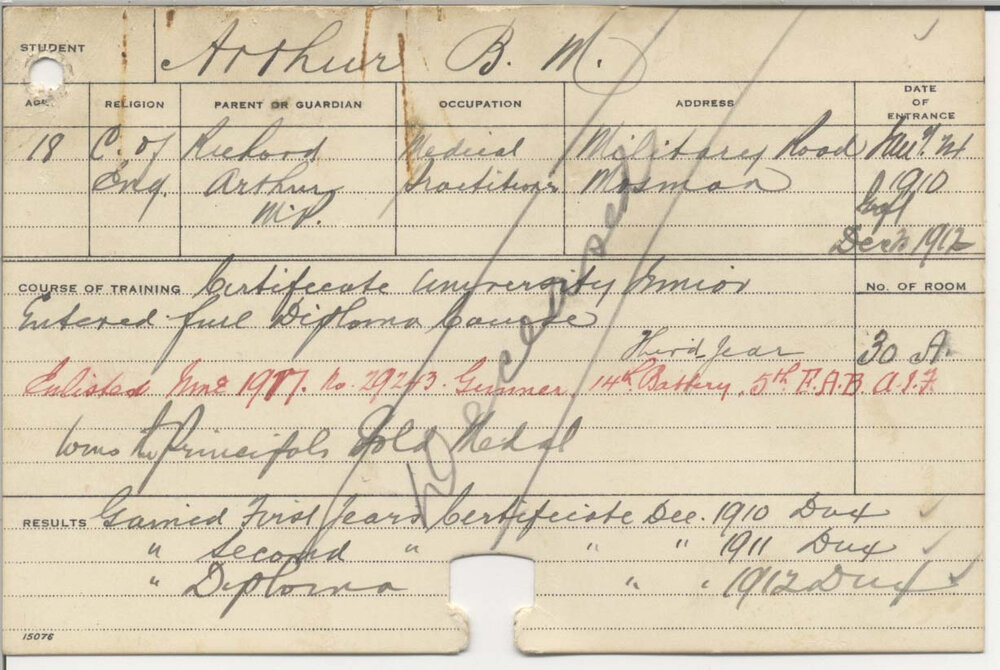 STUDENT Arthur B. M.
AGE RELIGION PARENT OR GUARDIAN OCCUPATION ADDRESS DATE OF ENTRANCE
18 C. of Richard Medical Military Road
Eng. Arthur Practitioner Mosman 1910
M.P.
Dec 1912
COURSE OF TRAINING Certificate University Junior No. OF ROOM
Entered full Diploma Course
Third Year 30 A.
Enlisted June 1917. No. 29243 Gunner, 14th Battery, 5th F.A.B. A.I.F.
Wins the Principals Gold Medal
Deceased
RESULTS Gained First Years Certificate Dec. 1910 Dux
" Second " " " 1911 Dux
" Diploma " " 1912 Dux
15076